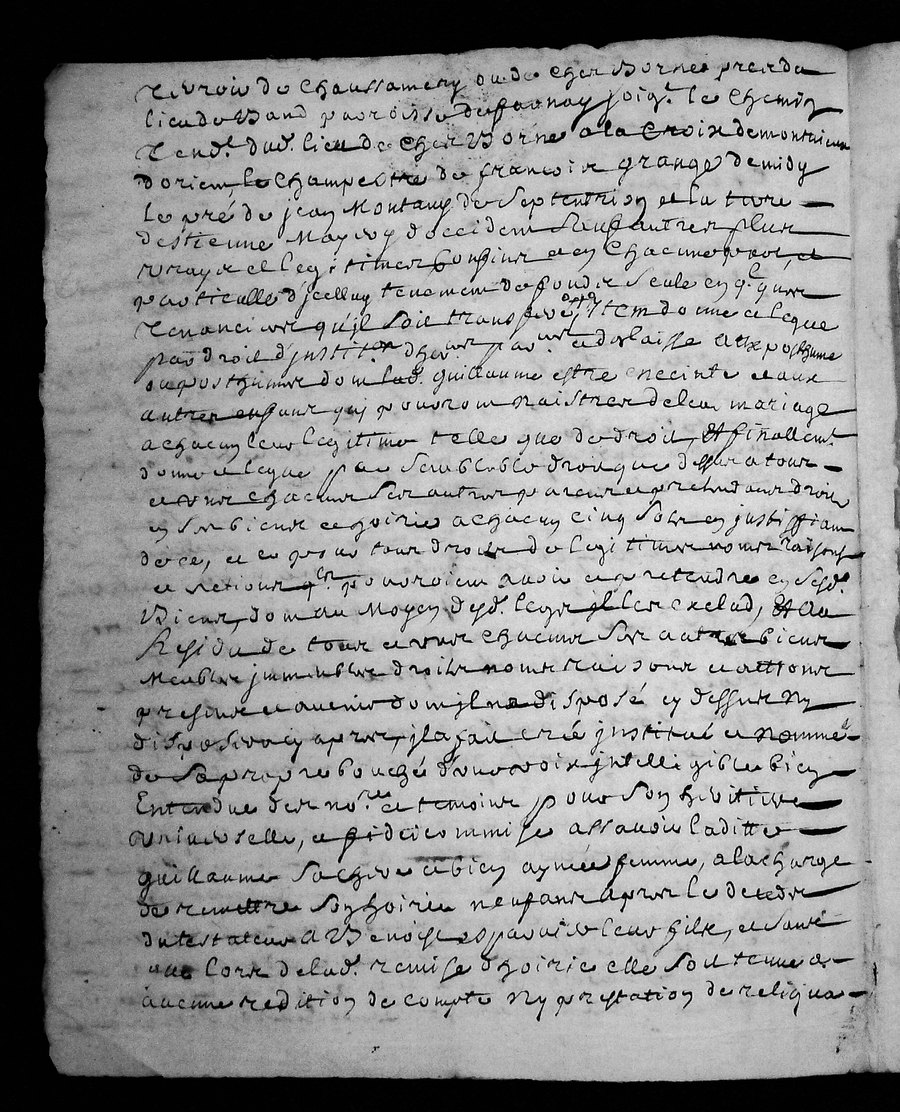 terroir de Chaussamery ou de Cher Borne prer du
lieu de Band parroisse de joigt. le chemin
tendt. dud. lieu de Cher Borne a la Croix de
d'orient le Champestre de francoise grange de midy
le pré de jean Montany de Septentrion et la terre
destienne d'occident Sauf autres plus
vrays et legitimes Confins et en Chacune part, et
particulle d'jcelluy tenement de fondz Seule en qlquer
tenanciers qu'jl soit transporté, jtem donne et legue
par droit d'justiton dhers. par. et delaisse aux posthume
ou posthumes dont lad. guillaume estre enceinte et aux
autres enfans qui pouront naistres de leur mariage
a chacun leur legitime telle que de droit, Et finallemt.
donne et legue par Semblable droit que dessus a tous
et uns chacuns Ses autres parens et pretendans droits
en Ses biens et hoirie a chacun cinq Solz en justiffiant
de ce, et ce pour tous droits de legitimes noms raisons
et actions qls. pouroient avoir et pretendre en Sesd.
Biens, dont au Moyen desd. legs jl les exclud, Et Au
Residu de tous et uns chacuns Ses autres biens
Meubles jmmeubles droits noms raisons et actions
presens et avenir dont jl na disposé cy dessus Ny
disposera cy apres, jl a fait créé jnstitué et nommé
de Sa propre bouche d'une voix jntelligible bien
Entendue des nore. et temoins pour Son heritiere
universelle, et fideicommise assavoir laditte
guillaume Sa chere et bien aymée femme, a la charge
de remettre Son hoirie neuf ans apres le deces
du testateur A Benoist leur filz, et Sans
que lors de lad. remise d'hoirie elle Soit tenue a
aucune redition de compte Ny prestation de reliqua